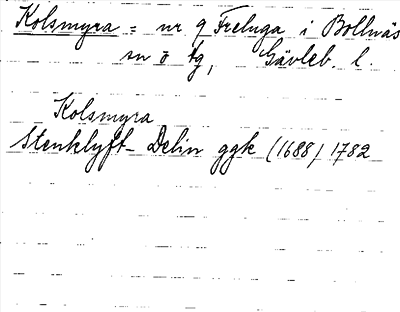 Kolsmyra = nr 9 Freluga i Bollnäs
sn o tg, Gävleb. l.
Kolsmyra
Stenklyft- Delin ggk (1688) 1782